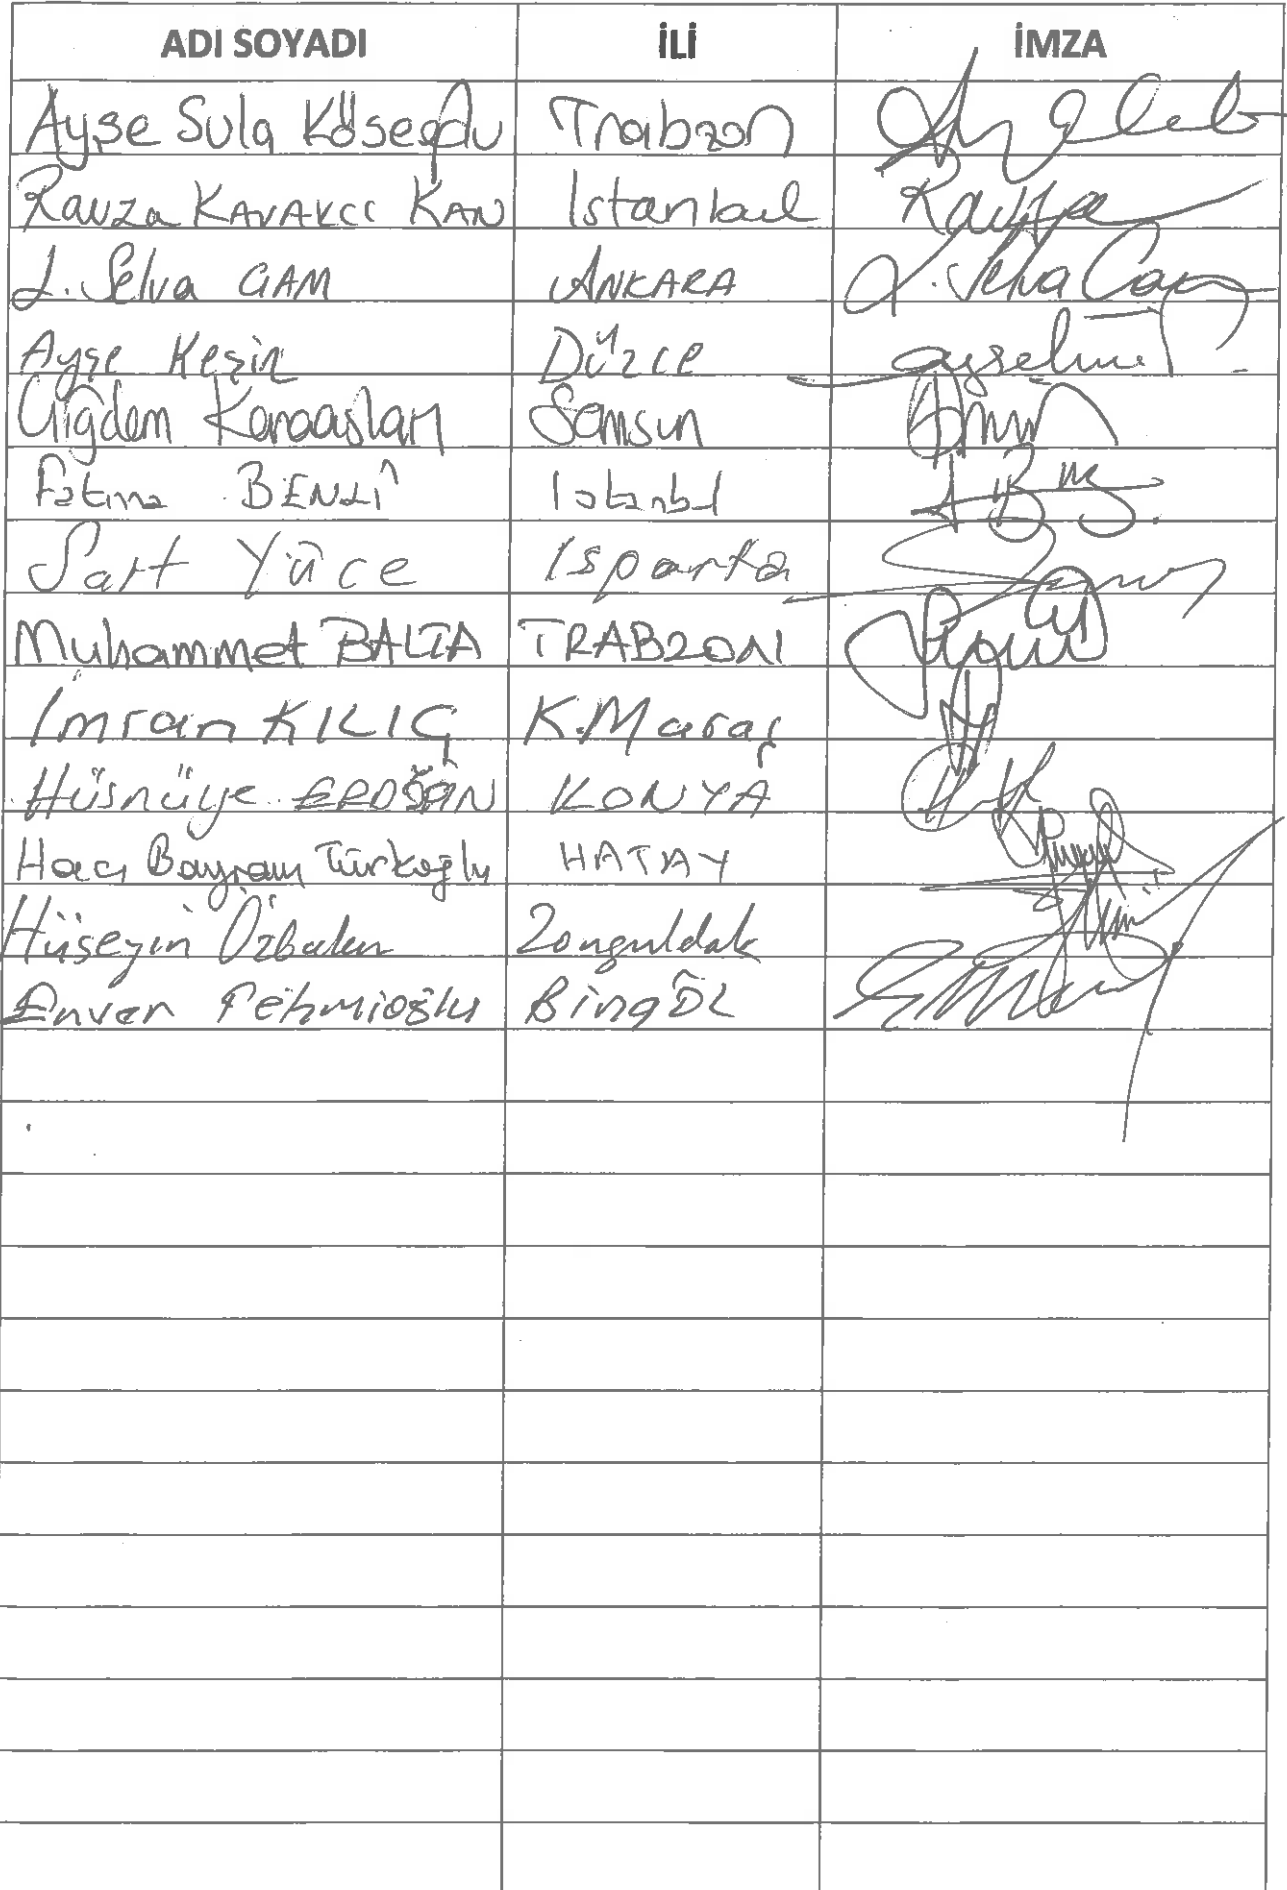 ADI SOYADI İLİ İMZA
Ayşe Sula Köseoğlu Trabzon
Ravza KAVAKCI KAN Istanbul
L. Selva ÇAM ANKARA L. Selva Çam
Ayşe Keşir Düzce
Çiğdem Karaaslan Samsun
Fatma BENLİ Istanbul
Sait Yüce Isparta
Muhammet BALTA TRABZON
İmran KILIÇ K.Maraş
Hüsnüye ERDOĞAN KONYA
Hacı Bayram Türkoğlu HATAY
Hüseyin Özbakır Zonguldak
Enver Fehmioğlu BingÖL